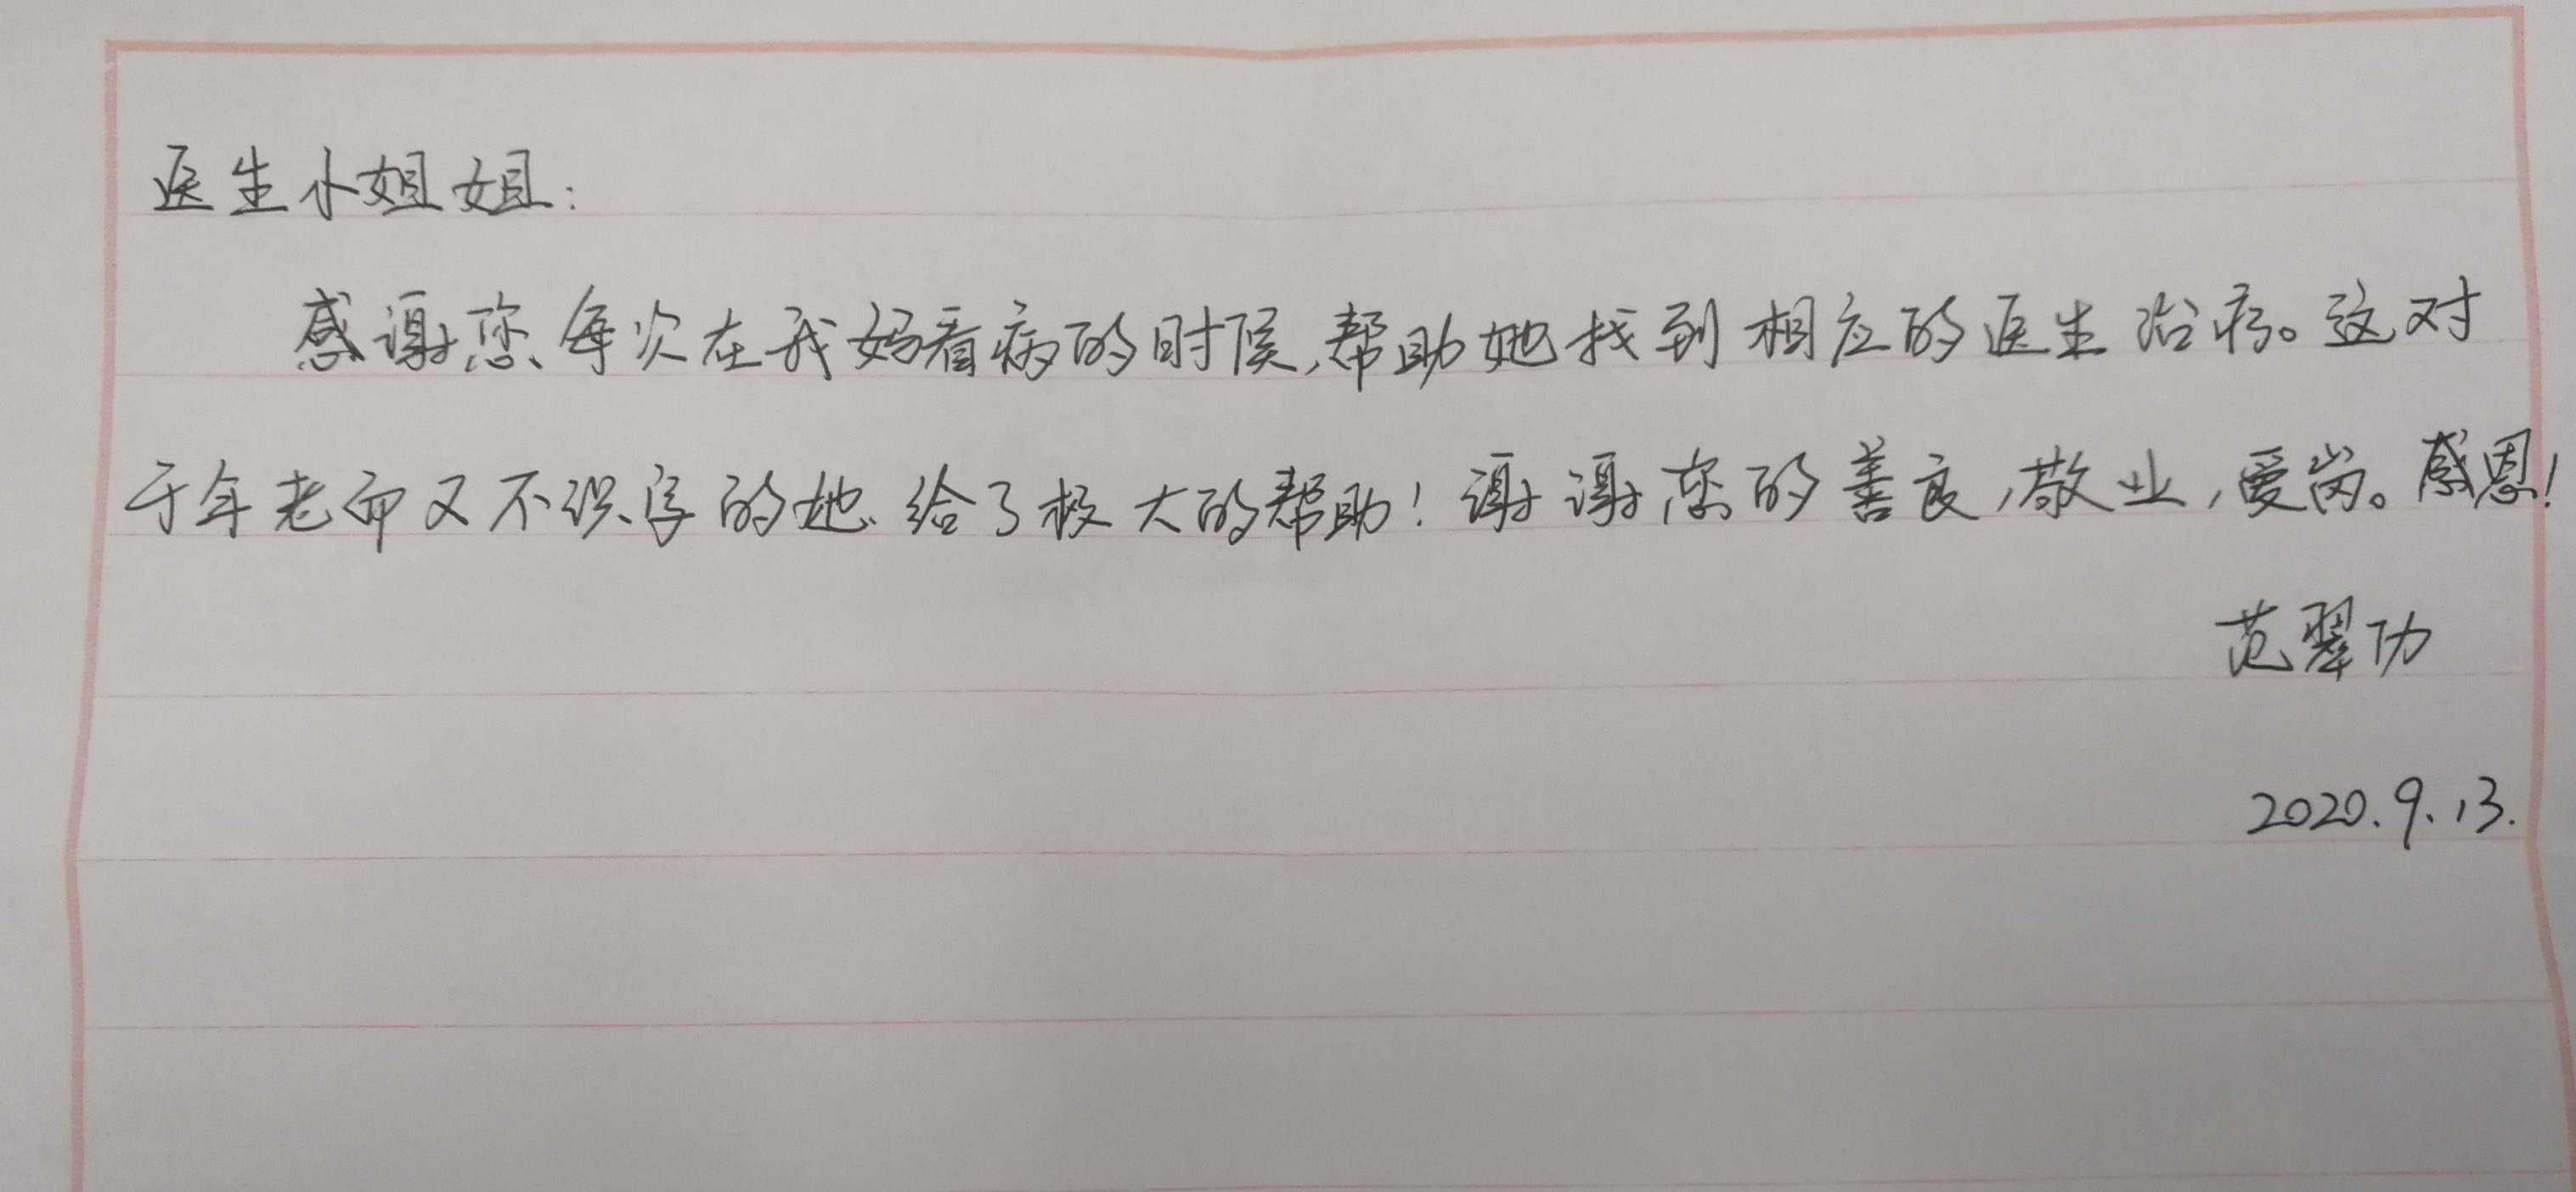 医生小姐姐：
感谢您、每次在我妈看病的时候，帮助她找到相应的医生治病。这对
于年老而又不识字的她给了极大的帮助！谢谢您的善良，敬业，爱岗。感恩！
范翠功
2020.9.13.